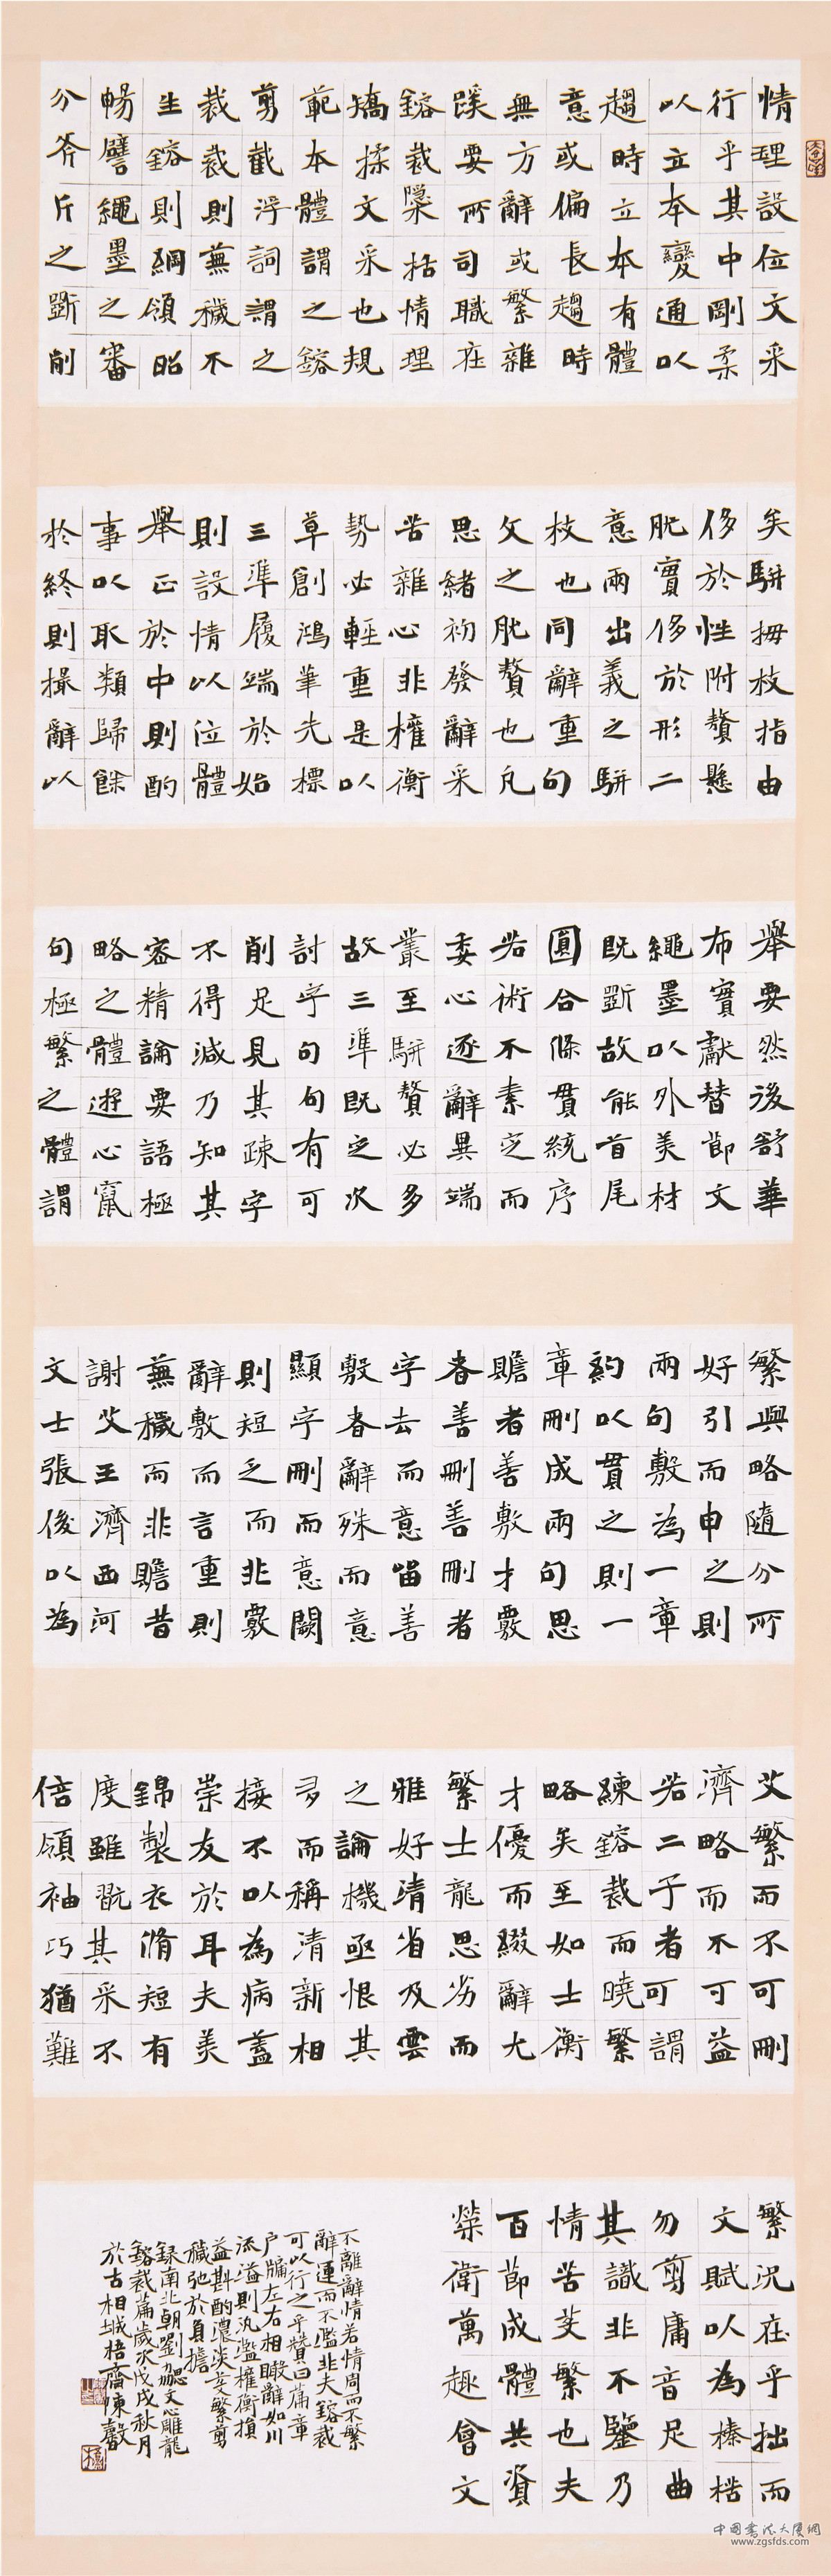 情理設位文采
行乎其中剛柔
以立本變通以
趨時立本有體
意或偏長趨時
無方辭或繁雜
蹊要所司職在
鎔裁檃括情理
矯揉文采也規
範本體謂之鎔
剪截浮詞謂之
裁裁則蕪穢不
生鎔則綱領昭
暢譬繩墨之審
分斧斤之斲削
矣駢拇枝指由
侈於性附贅懸
肬實侈於形二
意兩出義之駢
枝也同辭重句
文之肬贅也凡
思緒初發辭采
苦雜心非權衡
勢必輕重是以
草創鴻筆先標
三準履端於始
則設情以位體
舉正於中則酌
事以取類歸餘
於終則撮辭以
舉要然後舒華
布實獻替節文
繩墨以外美材
既斲故能首尾
圓合條貫統序
若術不素定而
委心逐辭異端
叢至駢贅必多
故三準既定次
討字句句有可
削足見其疎字
不得減乃知其
密精論要語極
略之體遊心竄
句極繁之體謂
繁與略隨分所
好引而申之則
兩句敷為一章
約以貫之則一
章刪成兩句思
贍者善敷才覈
者善刪善刪者
字去而意留善
敷者辭殊而意
顯字刪而意闕
則短乏而非覈
辭敷而言重則
蕪穢而非贍昔
謝艾王濟西河
文士張俊以為
艾繁而不可刪
濟略而不可益
若二子者可謂
練鎔裁而曉繁
略矣至如士衡
才優而綴辭尤
繁士龍思劣而
雅好清省及雲
之論機亟恨其
多而稱清新相
接不以為病蓋
崇友於耳夫美
錦製衣脩短有
度雖翫其采不
倍領袖巧猶難
繁況在乎拙而
文賦以為榛楛
勿剪庸音足曲
其識非不鑒乃
情苦芟繁也夫
百節成體共資
榮衛萬趣會文
不離辭情若情周而不繁
辭運而不濫非夫鎔裁
可以行之乎贊曰篇章
户牖左右相瞰辭如川
流溢則汎濫權衡損
益斟酌濃淡芟繁剪
穢弛於負擔
録南北朝劉勰文心雕龍
鎔裁篇歲次戊戌秋月
於古相城梧齋陳
中國書法大厦網
www.zgsfds.com